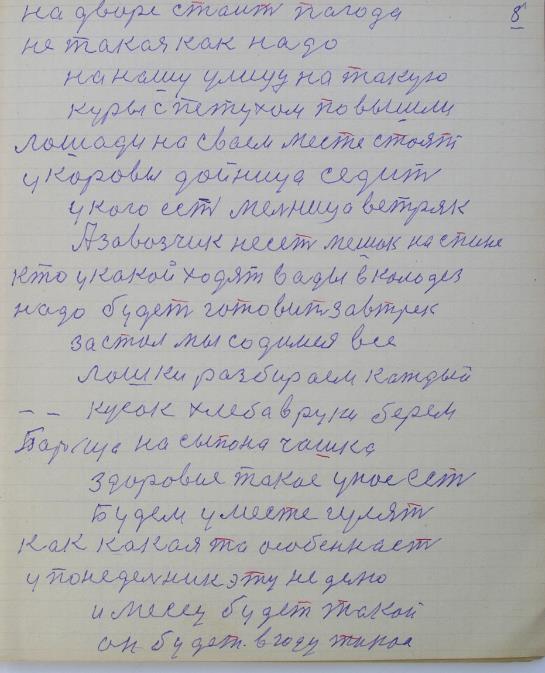 8
на дворе стаит пагода
не такая как надо
на нашу улицу на такую
куры с петухом повышли
лошади на сваем месте стоят
у коровы дойница седит
у кого ест мелница ветряк
А завозчик несет мешок на спине
кто у какой ходят вады в колодез
надо будет готовит завтрек
за стол мы содимся все
лошки разбираем каждый
– – кусок хлеба в руки берем
на сыпона чашка
здоровие такое у ное ест
Будем у месте гулят
как какая та особеннаст
у понеделник эту неделю
и месец будет такой
он будет в году